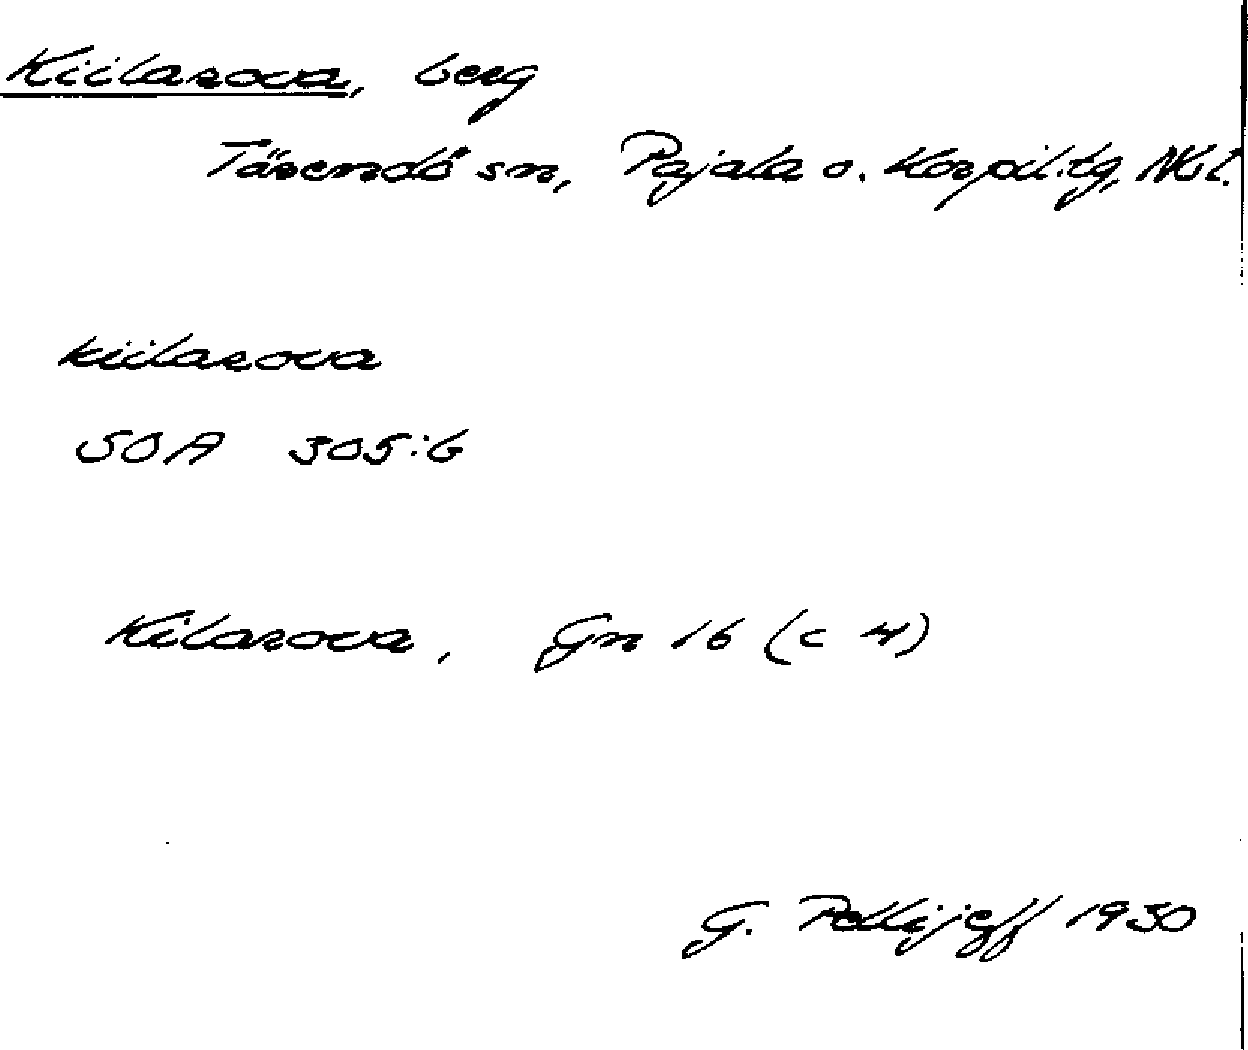 Kiilarova, berg
Tärendö sn, Pajala o. Korpil. tg, Nbt.
kiilarova
SOA 305:6
Kilarova, Gn 16 (c 4)
G. Pellijeff 1950